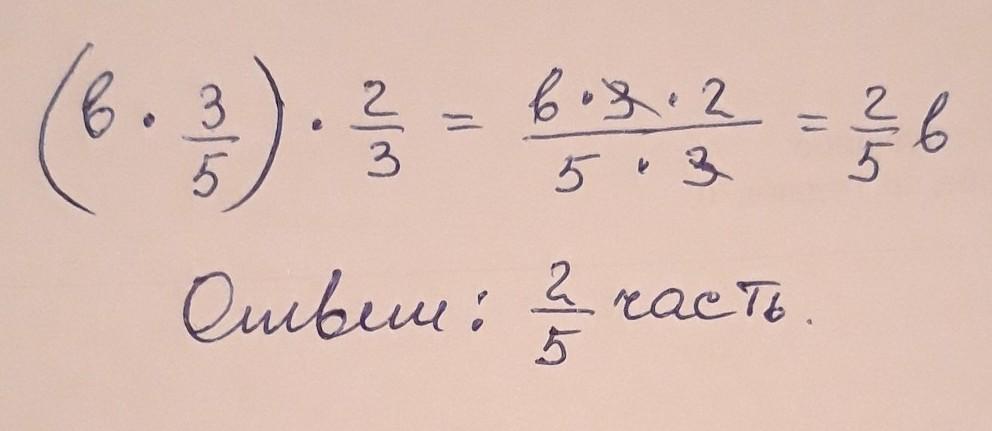 (в · 3/5) · 2/3 = в · 3 · 2 / 5 · 3 = 2/5 в
Ответ: 2/5 часть.